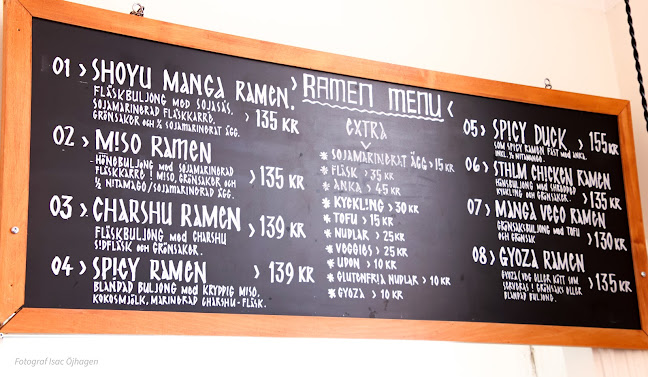 RAMEN MENU
01 > SHOYU MANGA RAMEN.
FLÄSKBULJONG MED SOJASÅS,
SOJAMARINERAD FLÄSKKARRÉ,
GRÖNSAKER OCH ½ SOJAMARINERAT ÄGG.
> 135 KR
02 > MISO RAMEN
HÖNSBULJONG MED SOJAMARINERAD
FLÄSKKARRÉ I MISO, GRÖNSAKER OCH
½ NITAMAGO/SOJAMARINERAT ÄGG.
> 135 KR
03 > CHARSHU RAMEN
FLÄSKBULJONG MED CHARSHU
SIDFLÄSK OCH GRÖNSAKER.
> 139 KR
04 > SPICY RAMEN
BLANDAD BULJONG MED KRYDDIG MISO.
KOKOSMJÖLK, MARINERAD CHARSHU-FLÄSK.
> 139 KR
EXTRA
* SOJAMARINERAT ÄGG > 15 KR
* FLÄSK > 35 KR
* ANKA > 45 KR
* KYCKLING > 30 KR
* TOFU > 15 KR
* NUDLAR > 25 KR
* VEGGIES > 25 KR
* UDON > 10 KR
* GLUTENFRIA NUDLAR > 10 KR
* GYOZA > 10 KR
05 > SPICY DUCK > 155 KR
SOM SPICY RAMEN FAST MED ANKA.
INKL. ½ NITAMAGO.
06 > STHLM CHICKEN RAMEN
HÖNSBULJONG MED SHREDDED
KYCKLING OCH GRÖNSAKER. > 135 KR
07 > MANGA VEGO RAMEN
GRÖNSAKSBULJONG MED TOFU
OCH GRÖNSAK > 130 KR
08 > GYOZA RAMEN
GYOZA (VEG ELLER KÖTT SOM
SERVERAS I GRÖNSAKS ELLER
BLANDAD BULJONG.
> 135 KR
Fotograf Isac Öjhagen